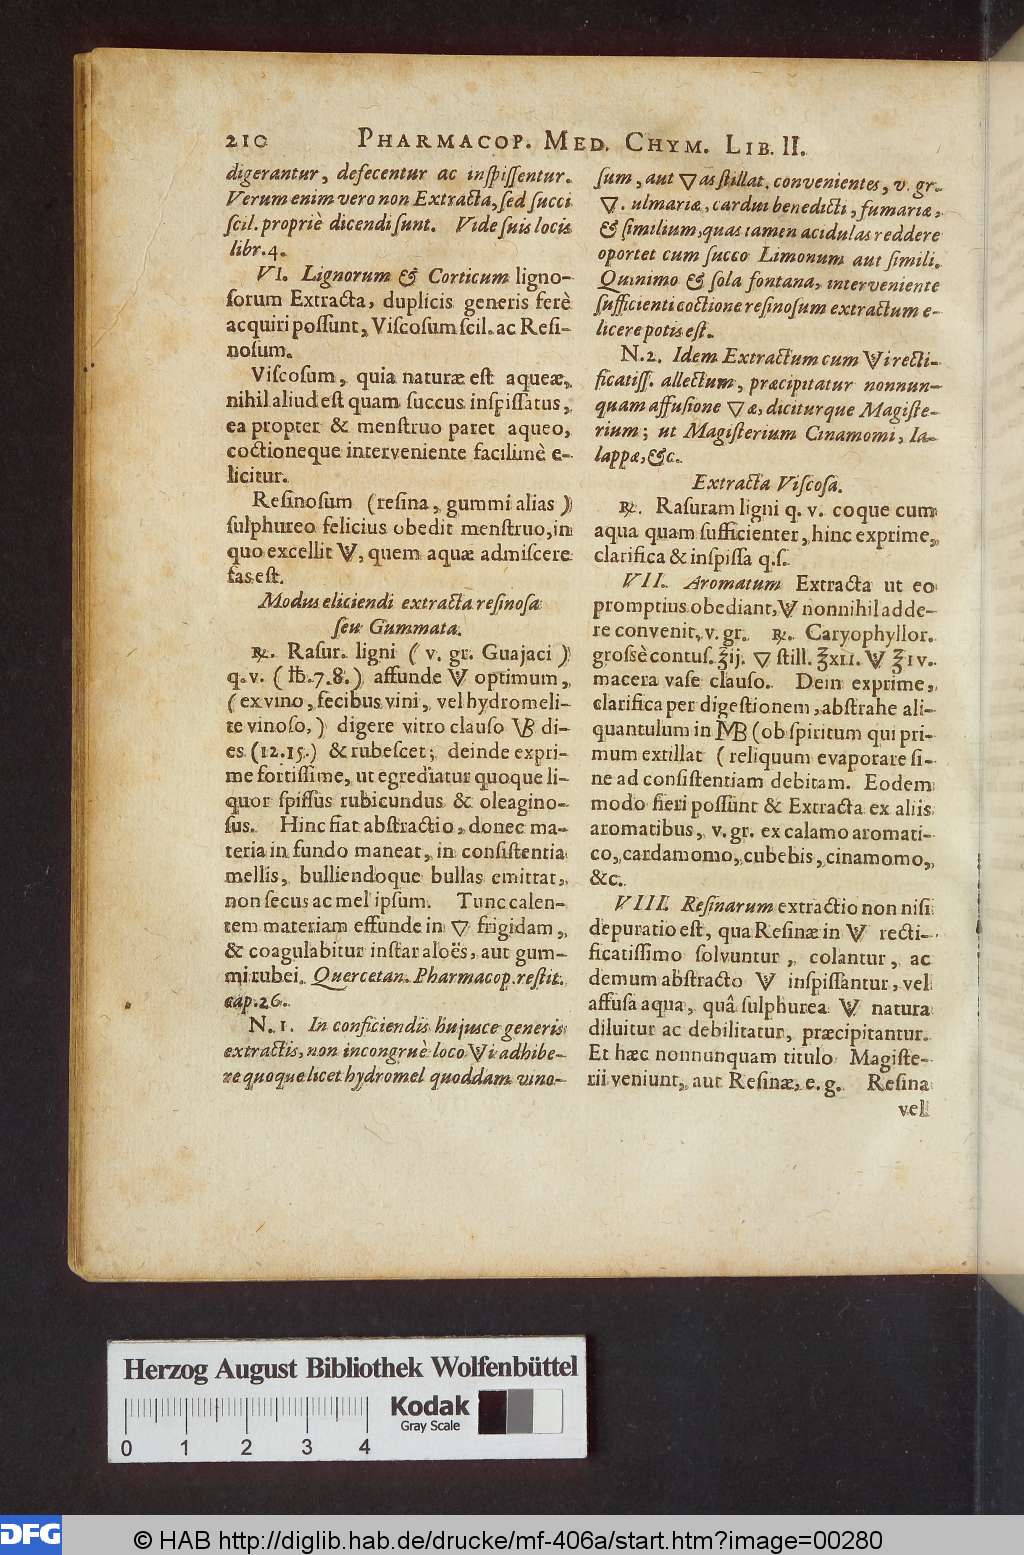 210 PHARMACOP. MED. CHYM. LIB. II.
digerantur, defecentur ac inſpiſſentur.
Verum enim vero non Extracta, ſed ſucci
ſcil. propriè dicendi ſunt. Vide ſuis locis
libr. 4.
VI. Lignorum & Corticum ligno-
ſorum Extracta, duplicis generis ferè
acquiri poſſunt, Viſcoſum ſcil. ac Reſi-
noſum.
Viſcoſum, quia naturæ eſt aqueæ,
nihil aliud eſt quam ſuccus inſpiſſatus,
ea propter & menſtruo paret aqueo,
coctioneque interveniente facilimè e-
licitur.
Reſinoſum (reſina, gummi alias)
ſulphureo felicius obedit menſtruo, in
quo excellit V, quem aquæ admiſcere
fas eſt.
Modus eliciendi extracta reſinoſa
ſeu Gummata.
℞. Raſur. ligni (v. gr. Guajaci)
q. v. (℔. 7. 8.) affunde V optimum,
(ex vino, fecibus vini, vel hydromeli-
te vinoſo,) digere vitro clauſo VB di-
es (12. 15.) & rubeſcet; deinde expri-
me fortiſſime, ut egrediatur quoque li-
quor ſpiſſus rubicundus & oleagino-
ſus. Hinc fiat abſtractio, donec ma-
teria in fundo maneat, in conſiſtentia
mellis, bulliendoque bullas emittat,
non ſecus ac mel ipſum. Tunc calen-
tem materiam effunde in ▽ frigidam,
& coagulabitur inſtar aloës, aut gum-
mi rubei. Quercetan. Pharmacop. reſtit.
cap. 26.
N. 1. In conficiendis hujusce generis
extractis, non incongruè loco Vi adhibe-
re quoque licet hydromel quoddam vino-
ſum, aut ▽as ſtillat. convenientes, v. gr.
▽. ulmariæ, cardui benedicti, fumariæ,
& ſimilium, quas tamen acidulas reddere
oportet cum ſucco Limonum aut ſimili.
Quinimo & ſola fontana, interveniente
ſufficienti coctione reſinoſum extractum e-
licere potis eſt.
N. 2. Idem Extractum cum Vi recti-
ficatiſſ. allectum, præcipitatur nonnun-
quam affuſione ▽æ, diciturque Magiſte-
rium; ut Magiſterium Cinamomi, Ia-
lappæ, &c.
Extracta Viſcoſa.
℞. Raſuram ligni q. v. coque cum
aqua quam ſufficienter, hinc exprime,
clarifica & inſpiſſa q. ſ.
VII. Aromatum Extracta ut eo
promptius obediant, V nonnihil adde-
re convenit, v. gr. ℞. Caryophyllor.
groſsè contuſ. ℥ij. ▽ ſtill. ℥XII. V ℥IV.
macera vaſe clauſo. Dein exprime,
clarifica per digeſtionem, abſtrahe ali-
quantulum in MB (ob ſpiritum qui pri-
mum extillat (reliquum evaporare ſi-
ne ad conſiſtentiam debitam. Eodem
modo fieri poſſunt & Extracta ex aliis
aromatibus, v. gr. ex calamo aromati-
co, cardamomo, cubebis, cinamomo,
&c.
VIII. Reſinarum extractio non niſi
depuratio eſt, qua Reſinæ in V recti-
ficatiſſimo ſolvuntur, colantur, ac
demum abſtracto V inſpiſſantur, vel
affuſa aqua, quâ ſulphurea V natura
diluitur ac debilitatur, præcipitantur.
Et hæc nonnunquam titulo Magiſte-
rii veniunt, aut Reſinæ, e. g. Reſina
vel
Herzog August Bibliothek Wolfenbüttel
Kodak
Gray Scale
0 1 2 3 4
DFG © HAB http://diglib.hab.de/drucke/mf-406a/start.htm?image=00280